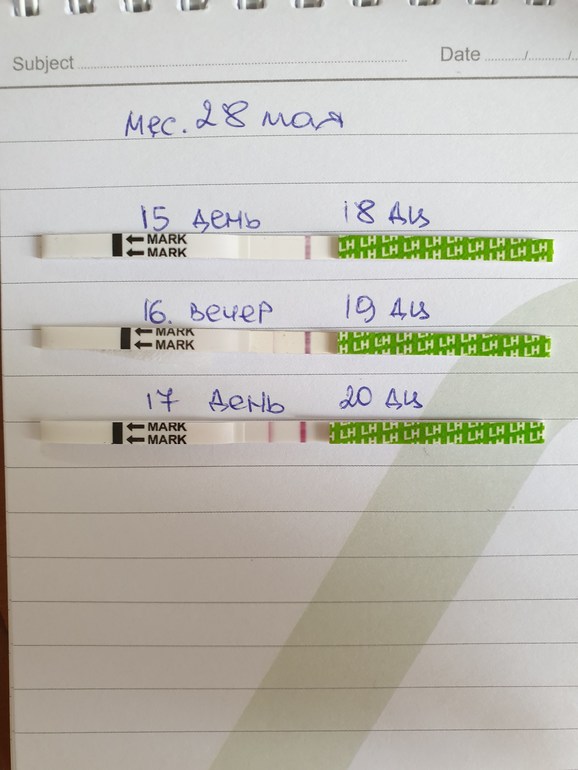 Subject Date / /
Мес. 28 мая
15 день 18 ДЦ
MARK
MARK
LH LH LH LH LH LH LH LH LH LH
16. вечер 19 ДЦ
MARK
MARK
LH LH LH LH LH LH LH LH LH LH
17 день 20 ДЦ
MARK
MARK
LH LH LH LH LH LH LH LH LH LH